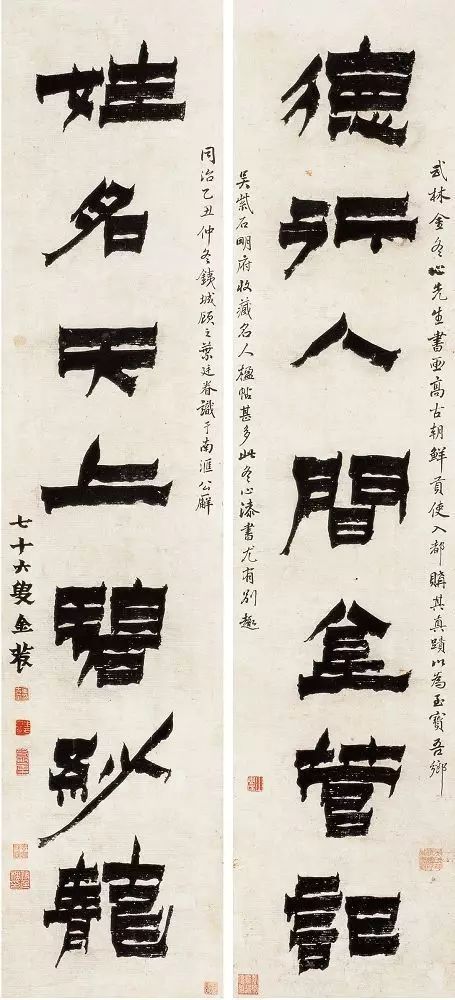 武林金冬心先生書画高古朝鮮貢使入都購其真蹟以為玉寶吾鄉
德行人間金管記
吳紫石明府收藏名人楹帖甚多此冬心漆書尤有別趣
同治乙丑仲冬鐵城顧之葉廷眷識于南滙公廨
姓名天上碧紗龍
七十六叟金農